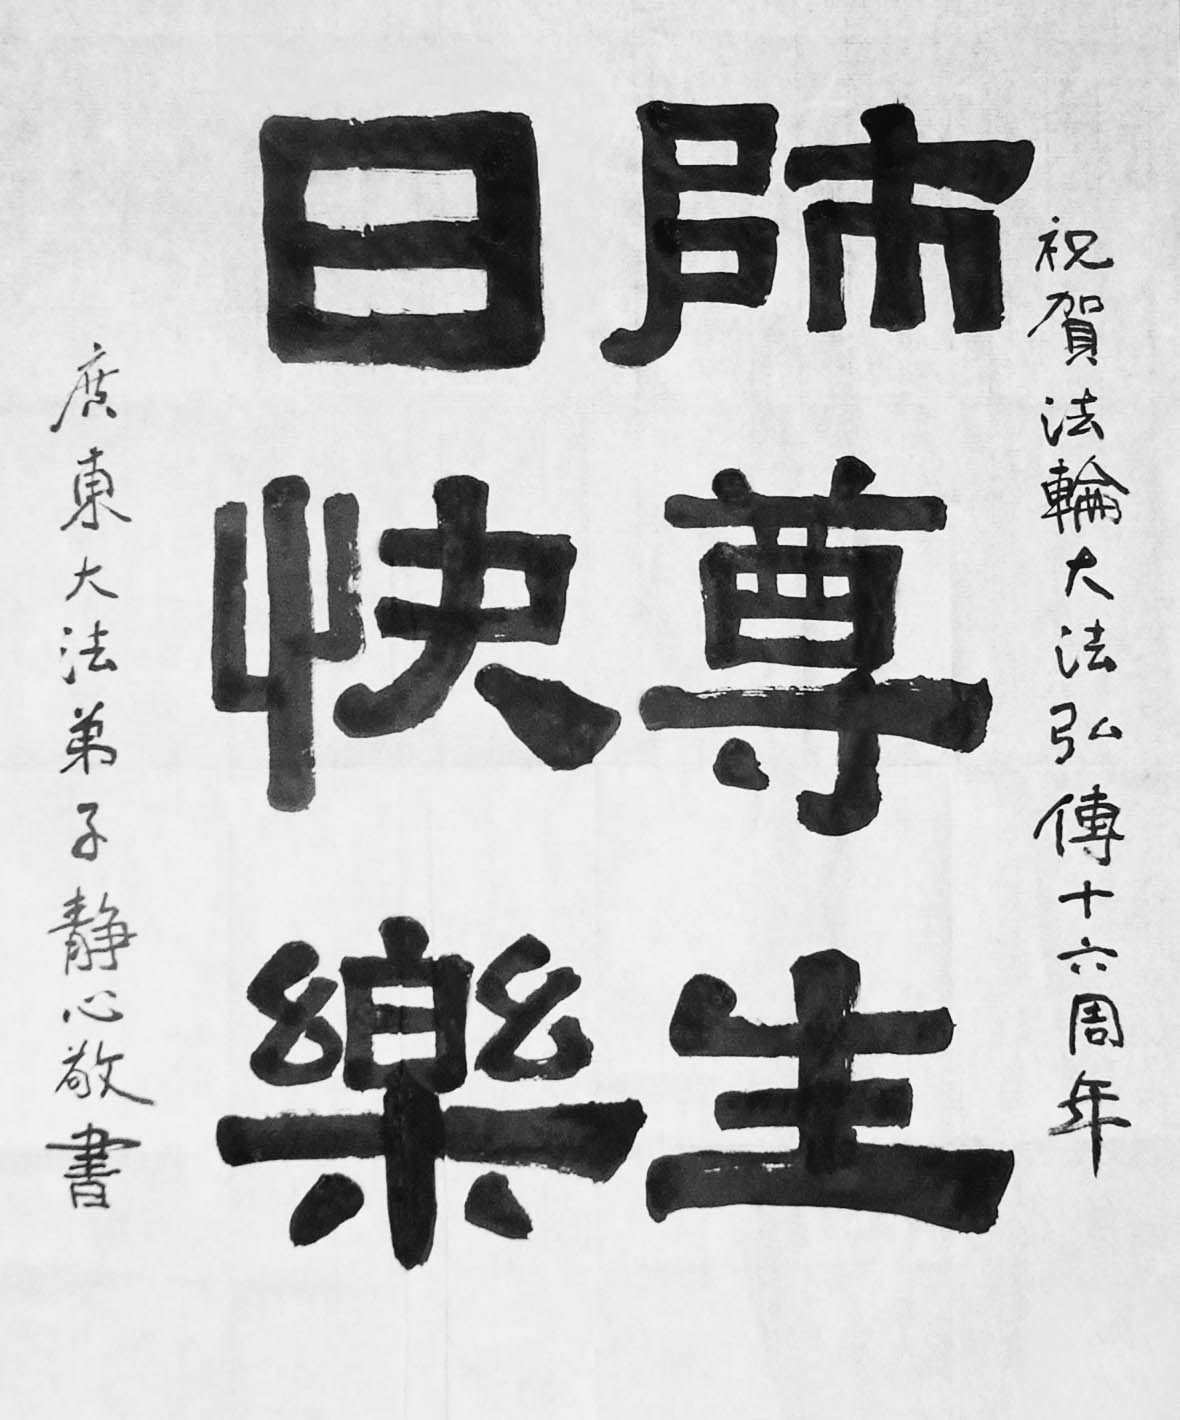 祝賀法輪大法弘傳十六周年
師尊生
日快樂
廣東大法弟子靜心敬書